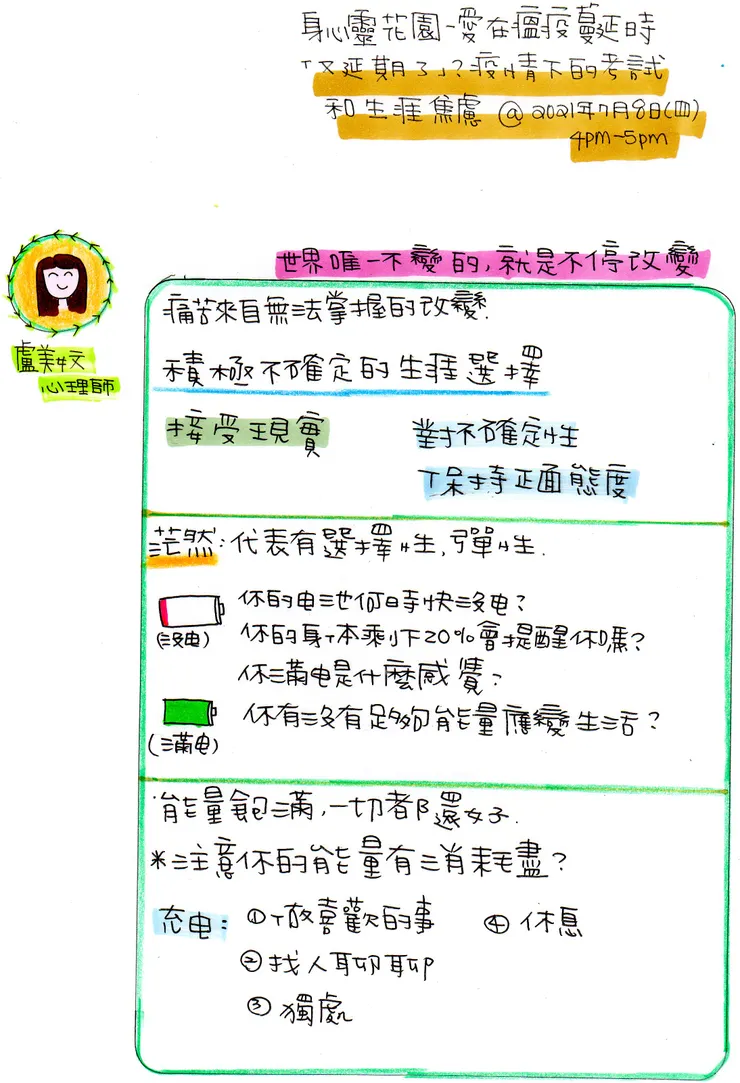 身心靈花園-愛在瘟疫蔓延時
「又延期了」?疫情下的考試
和生涯焦慮 @ 2021年7月8日(四)
4pm-5pm
世界唯一不變的,就是不停改變
盧美妏
心理師
痛苦來自無法掌握的改變.
積極不確定的生涯選擇
接受現實
對不確定性
保持正面態度
茫然:代表有選擇性,彈性.
(沒电)
你的电池何時快沒电?
你的身体剩下20%會提醒你嗎?
你滿电是什麼感覺?
(滿电)
你有沒有足夠能量應變生活?
能量飽滿,一切都還好.
*注意你的能量有消耗盡?
充电:
①做喜歡的事
④休息
②找人聊聊
③獨處